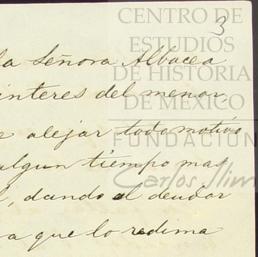 CENTRO DE
ESTUDIOS
DE HISTORIA
DE MÉXICO
FUNDACIÓN
Carlos Slim
3
la Señora Albacea
interes del menor
alejar todo motivo
algun tiempo mas
, dando al deudor
a que lo redima